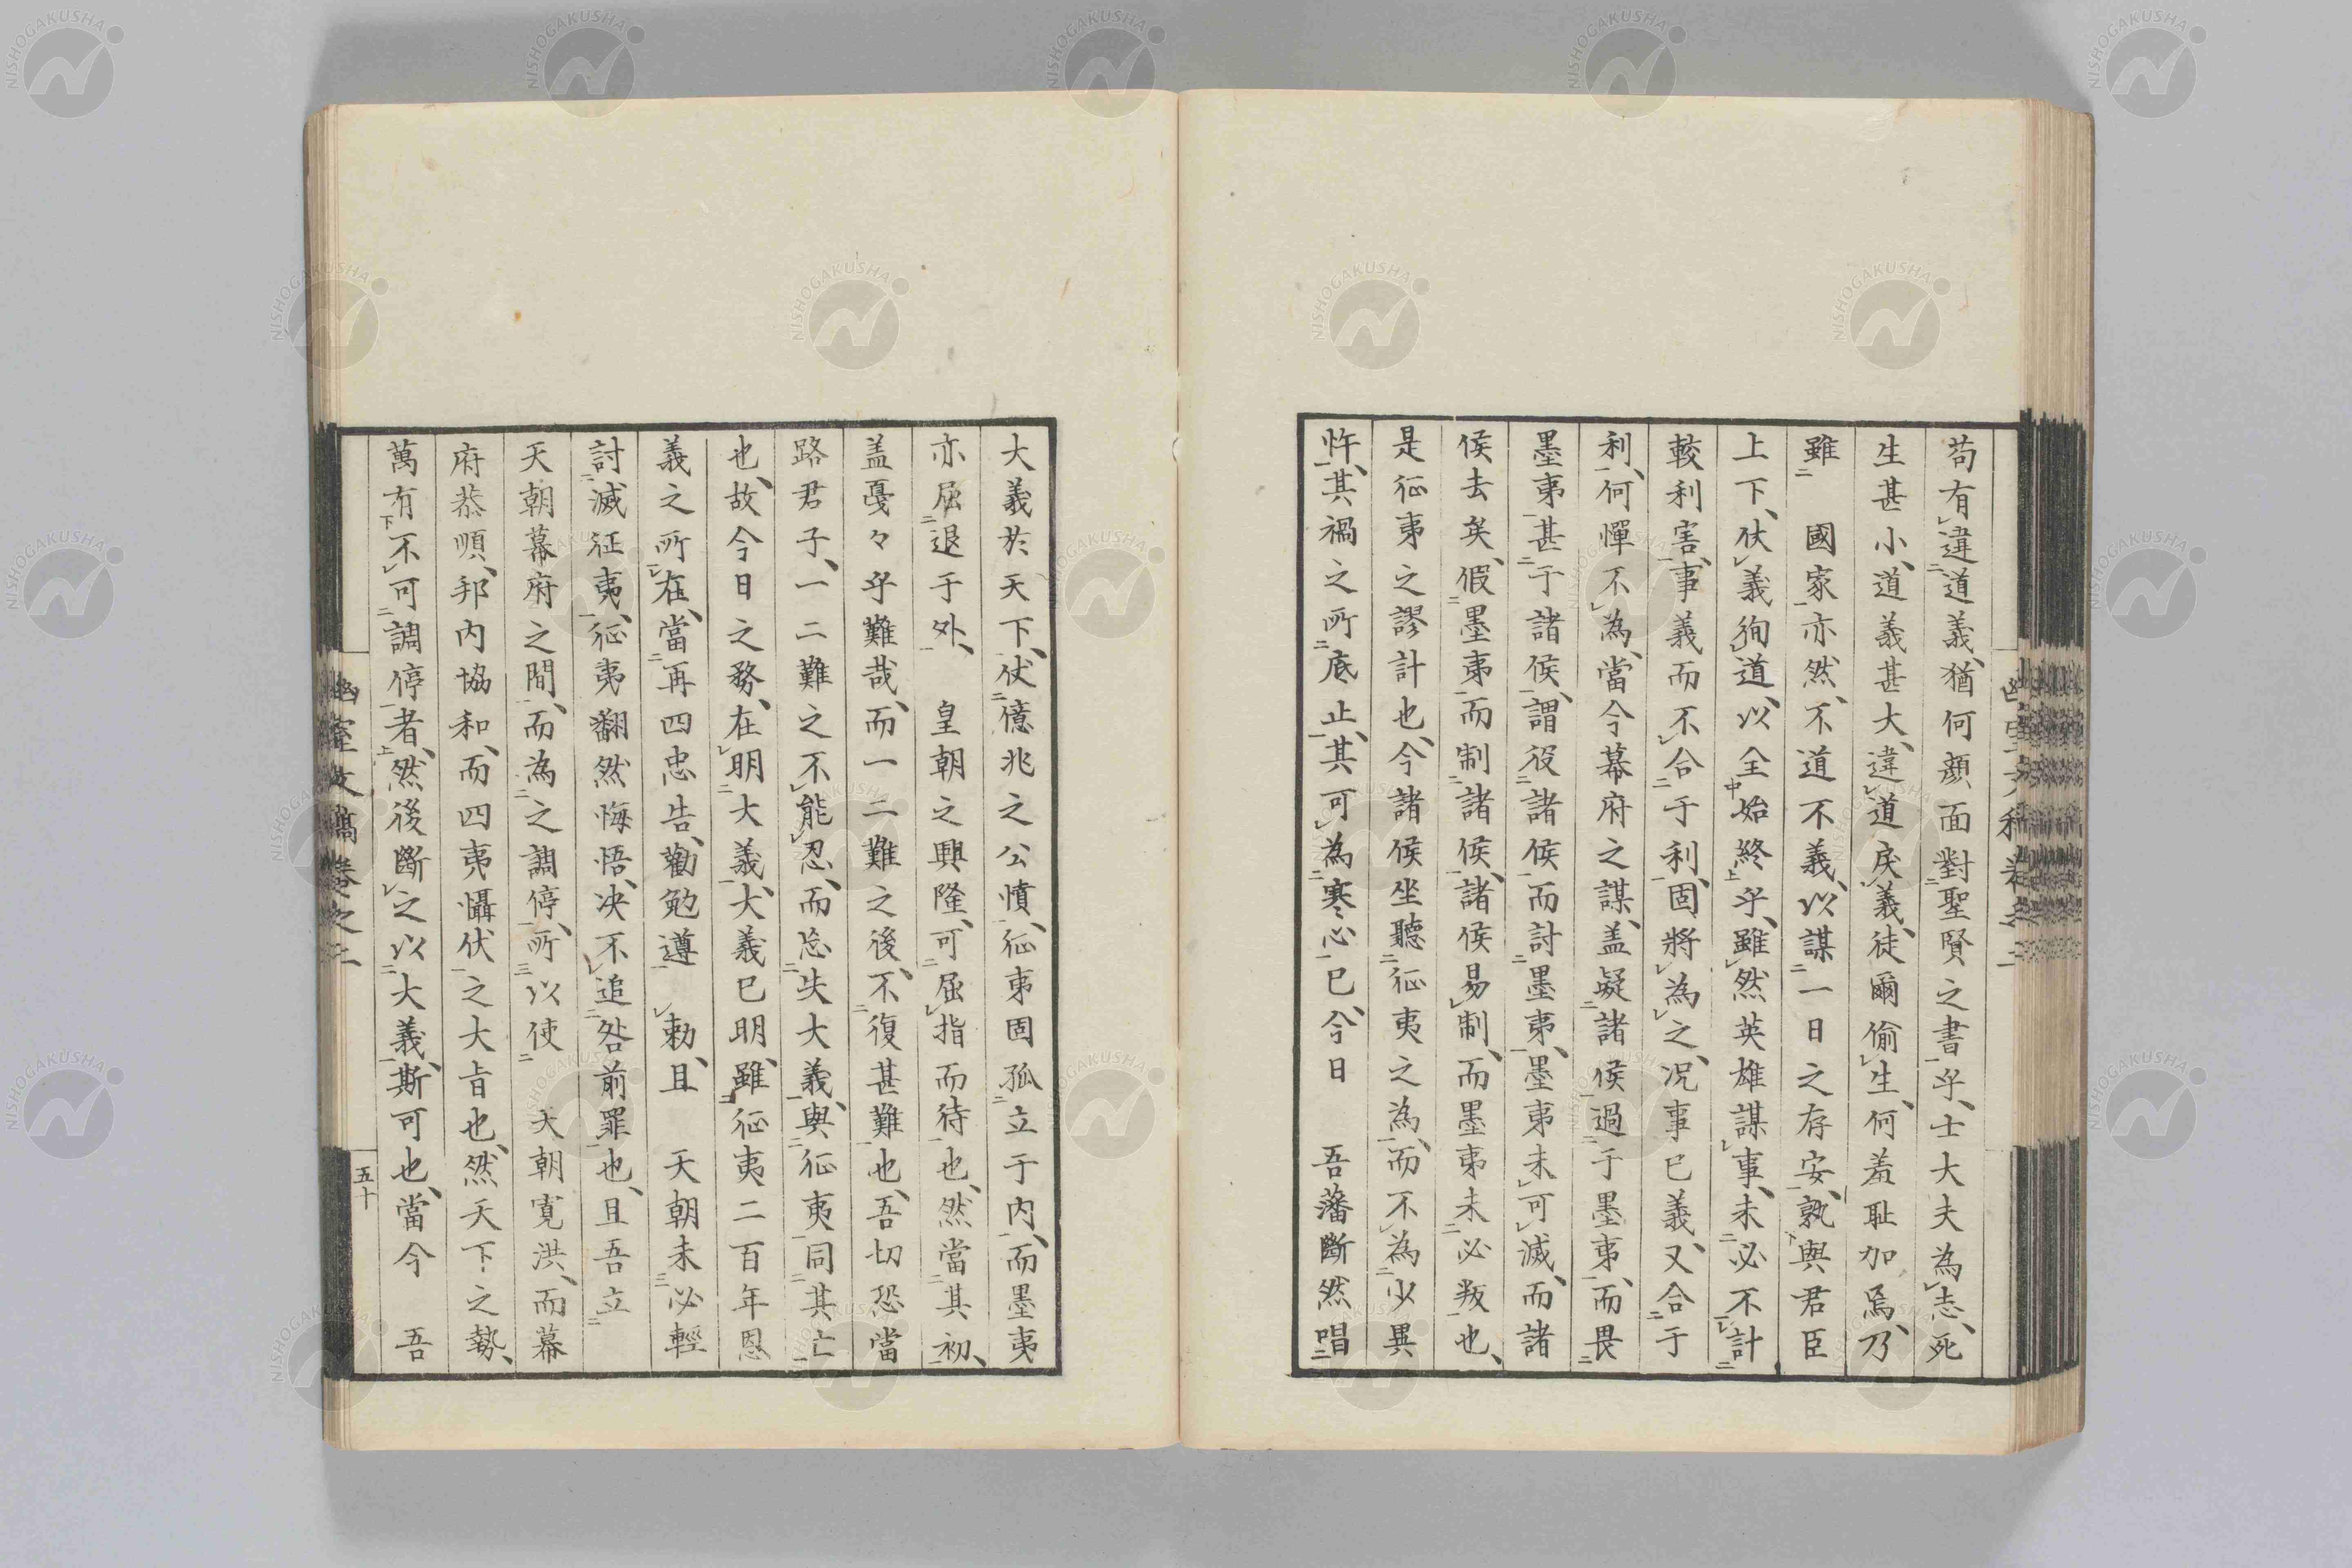 苟有違道義、猶何顔面對聖賢之書乎、士大夫為志、死
生甚小、道義甚大、違道戾義、徒爾偷生、何羞耻加焉、乃
雖　國家亦然、不道不義、以謀一日之存安、孰與君臣
上下、仗義徇道、以全始終乎、雖然英雄謀事、未必不計
較利害、事義而不合于利、固將為之、况事已義、又合于
利、何憚不為、當今幕府之謀、盖疑諸侯過于墨夷、而畏
墨夷甚于諸侯、謂役諸侯而討墨夷、墨夷未可滅、而諸
侯去矣、假墨夷而制諸侯、諸侯易制、而墨夷未必叛也、
是征夷之謬計也、今諸侯坐聽征夷之為、而不為少異
忤、其禍之所底止、其可為寒心已、今日　吾藩斷然唱
大義於天下、仗億兆之公憤、征夷固孤立于内、而墨夷
亦屈退于外、　皇朝之興隆、可屈指而待也、然當其初、
盖戞々乎難哉、而一二難之後、不復甚難也、吾切恐當
路君子、一二難之不能忍、而忘失大義、與征夷同其亡
也、故今日之務、在明大義、大義已明、雖征夷二百年恩
義之所在、當再四忠告、勸勉遵　勅、且　天朝未必輕
討滅征夷、征夷翻然悔悟、决不追咎前罪也、且吾立
天朝幕府之間、而為之調停、所以使　天朝寛洪、而幕
府恭順、邦内協和、而四夷懾伏之大旨也、然天下之勢、
萬有不可調停者、然後斷之以大義、斯可也、當今　吾
幽室文稿卷之二
五十
NISHOGAKUSHA